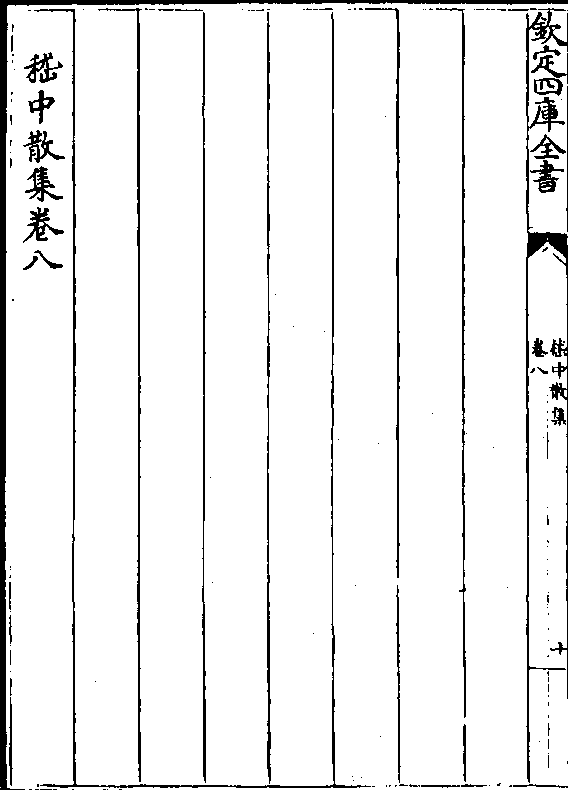 欽定四庫全書
嵇中散集
卷八
十
嵇中散集卷八